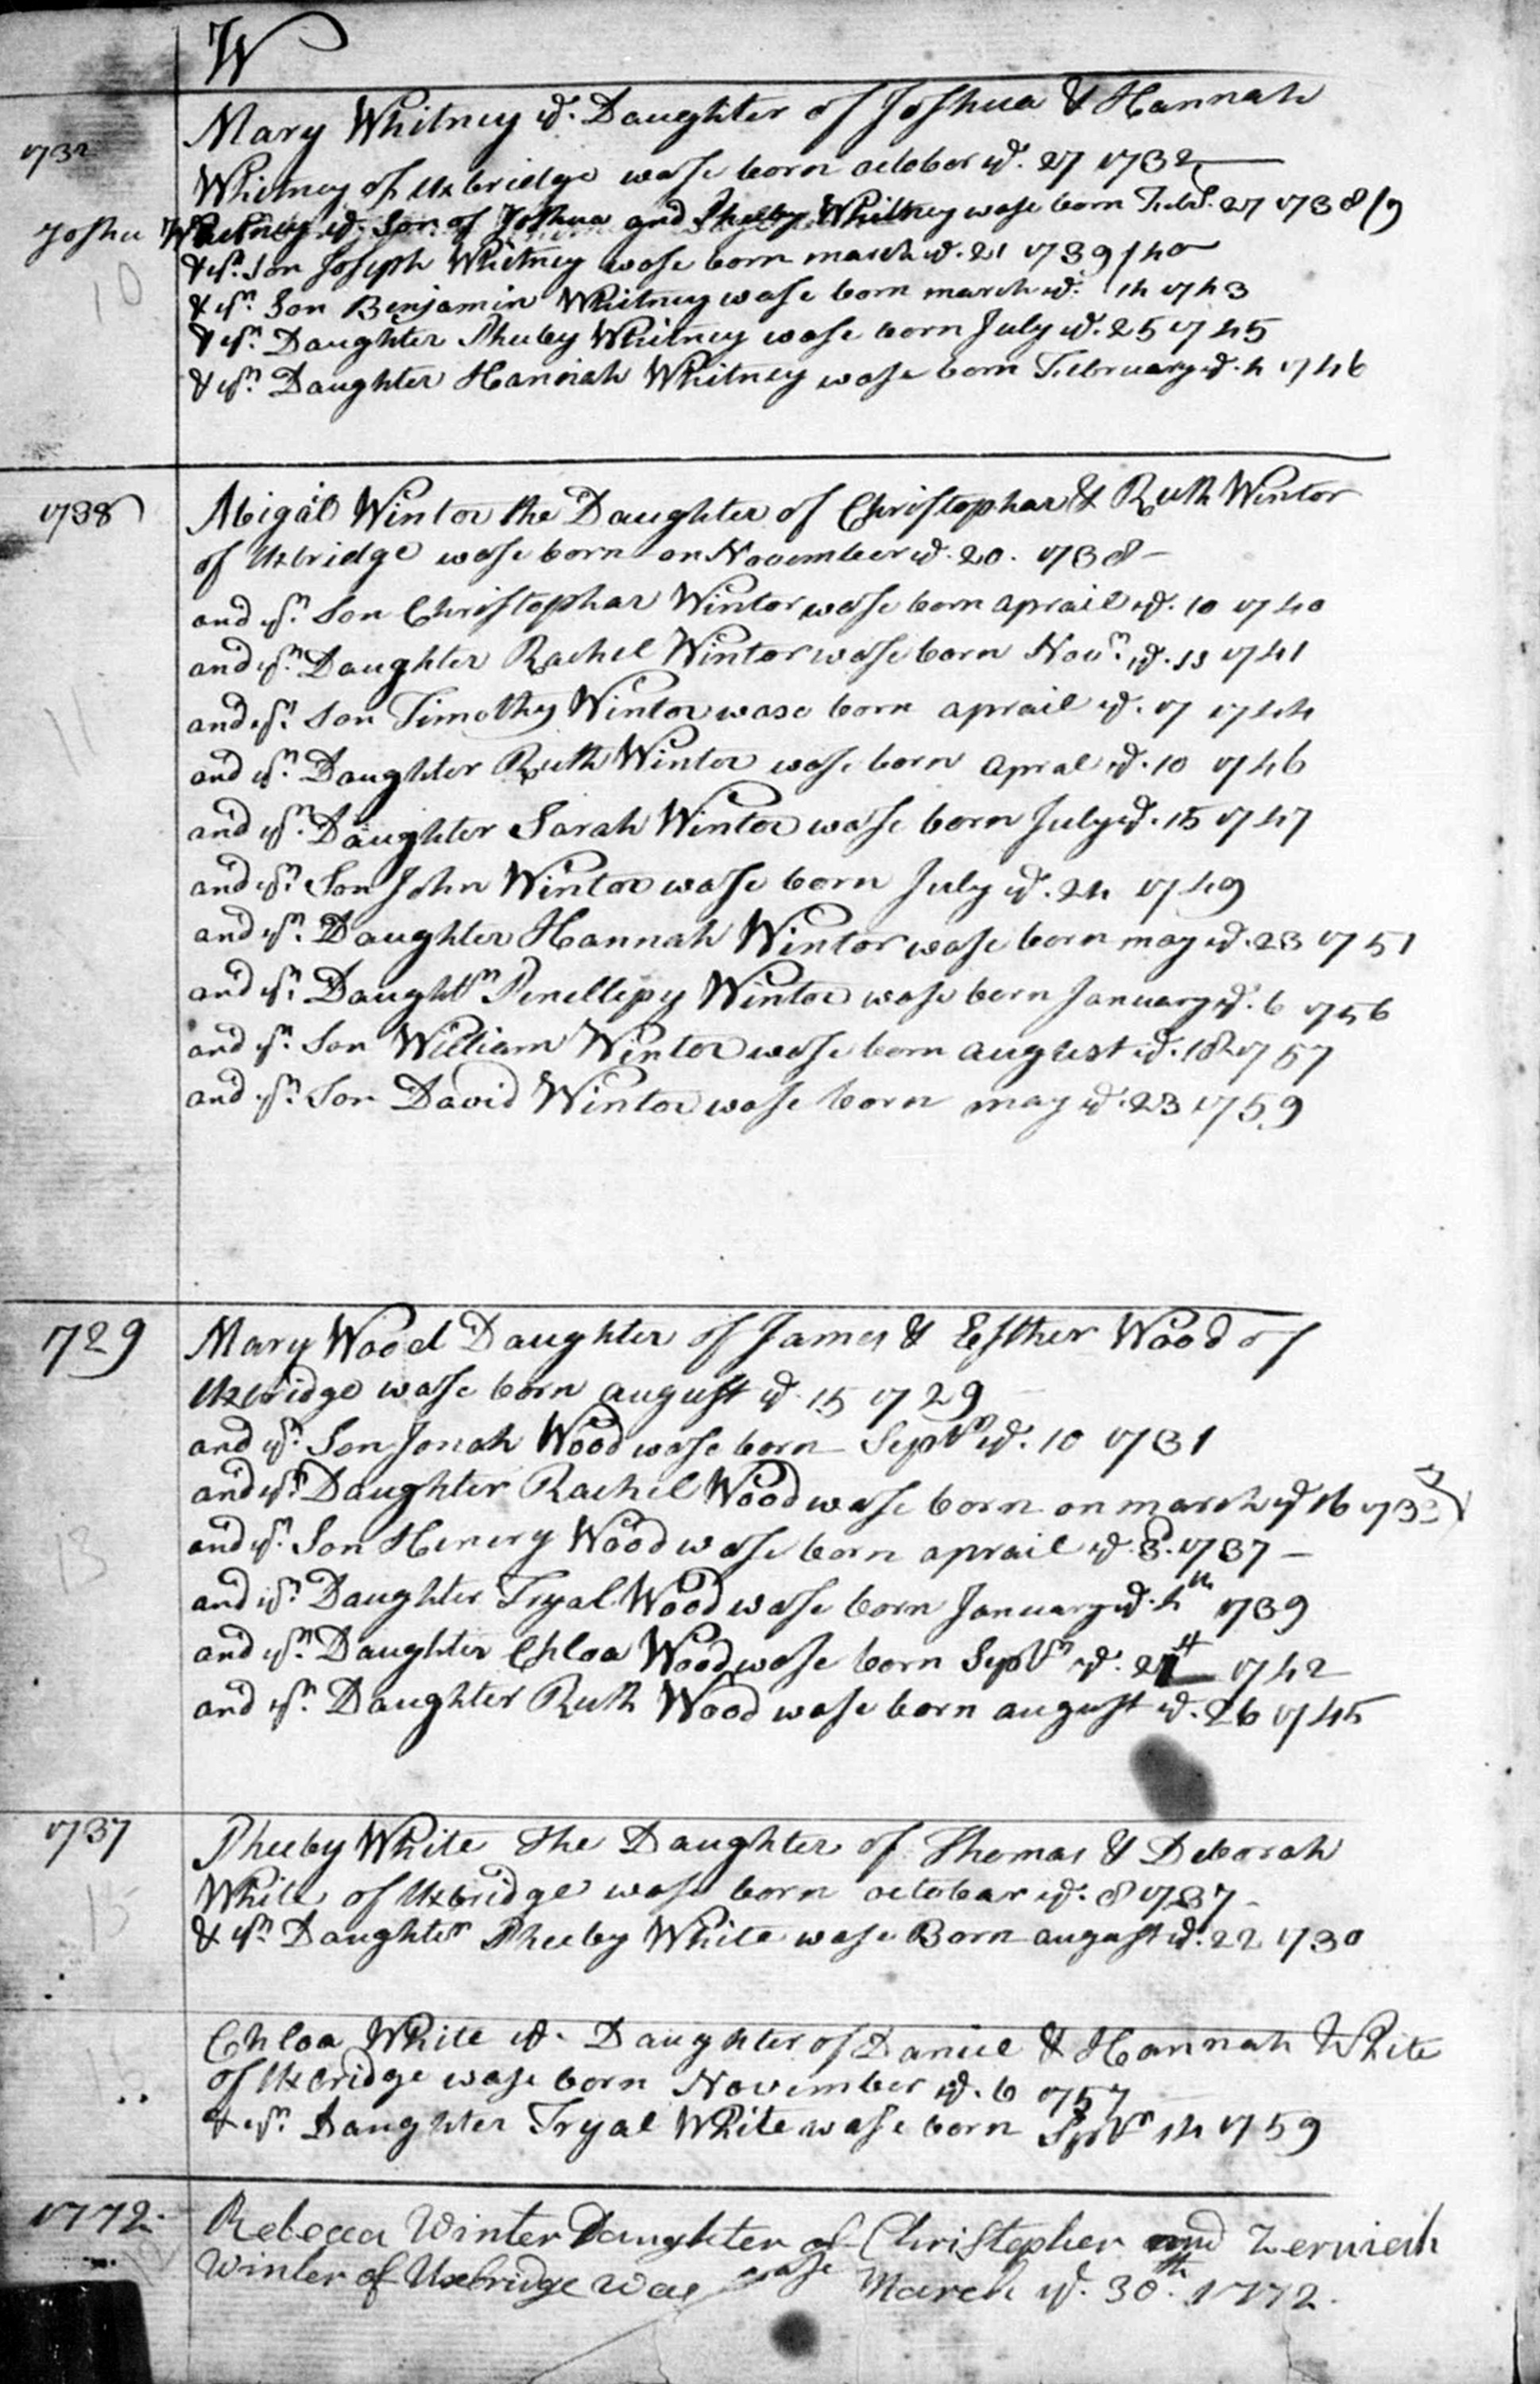 W
1732
Mary Whitney yͤ. Daughter of Joshua & Hannah
Whitney of Uxbridge wase born october yͤ. 27 1732
Joshu Whitney yͤ. Son of Joshua and Pheeby Whitney wase born Febr. 27 1738/9
& yr. Son Joseph Whitney wase born march yͤ. 21 1739/40
& yr. Son Benjamin Whitney wase born march yͤ. 14 1743
& yr. Daughter Pheeby Whitney wase born July yͤ. 25 1745
& yr. Daughter Hannah Whitney wase born February yͤ. 4 1746
10
1738
Abigail Wintor the Daughter of Christophar & Ruth Wintor
of Uxbridge wase born on November yͤ. 20. 1738
and yr. Son Christophar Wintor wase born aprail yͤ. 10 1740
and yr. Daughter Rachel Wintor wase born Novr. yͤ. 1740
and yr. Son Timothy Wintor wase born aprail yͤ. 7 1744
11
and yr. Daughter Ruth Wintor wase born apral yͤ. 10 1746
and yr. Daughter Sarah Wintor wase born July yͤ. 15 1747
and yr. Son John Wintor wase born July yͤ. 24 1749
and yr. Daughter Hannah Wintor wase born may yͤ. 23 1751
and yr. Daughtr Penellepy Wintor wase born January yͤ. 6 1756
and yr. Son William Wintor wase born august yͤ. 18 1757
and yr. Son David Wintor wase born may yͤ. 23 1759
1729
Mary Wood Daughter of James & Esther Wood of
Uxbridge wase born august yͤ. 15 1729
and yr. Son Jonah Wood wase born Septr yͤ. 10 1731
and yr. Daughter Rachel Wood wase born on march yͤ 16
and yr. Son Henery Wood wase born aprail yͤ. 8. 1737
13
and yr. Daughter Tryal Wood wase born January yͤ. 4th 1739
and yr. Daughter Chloa Wood wase born Septr yͤ. 21st 1742
and yr. Daughter Ruth Wood wase born august yͤ. 26 1745
1737
Pheeby White the Daughter of Thomas & Deborah
White of Uxbridge wase born octobar yͤ. 8 1737
15
& yr. Daughter Pheeby White wase Born august yͤ. 22 1730
Chloa White yͤ. Daughter of Daniel & Hannah White
of Uxbridge wase born November yͤ. 6 1757
& yr. Daughter Tryal White wase born Septr 14 1759
1772
Rebecca Winter Daughter of Christopher and Zerviah
Winter of Uxbridge was wase March yͤ. 30th. 1772.